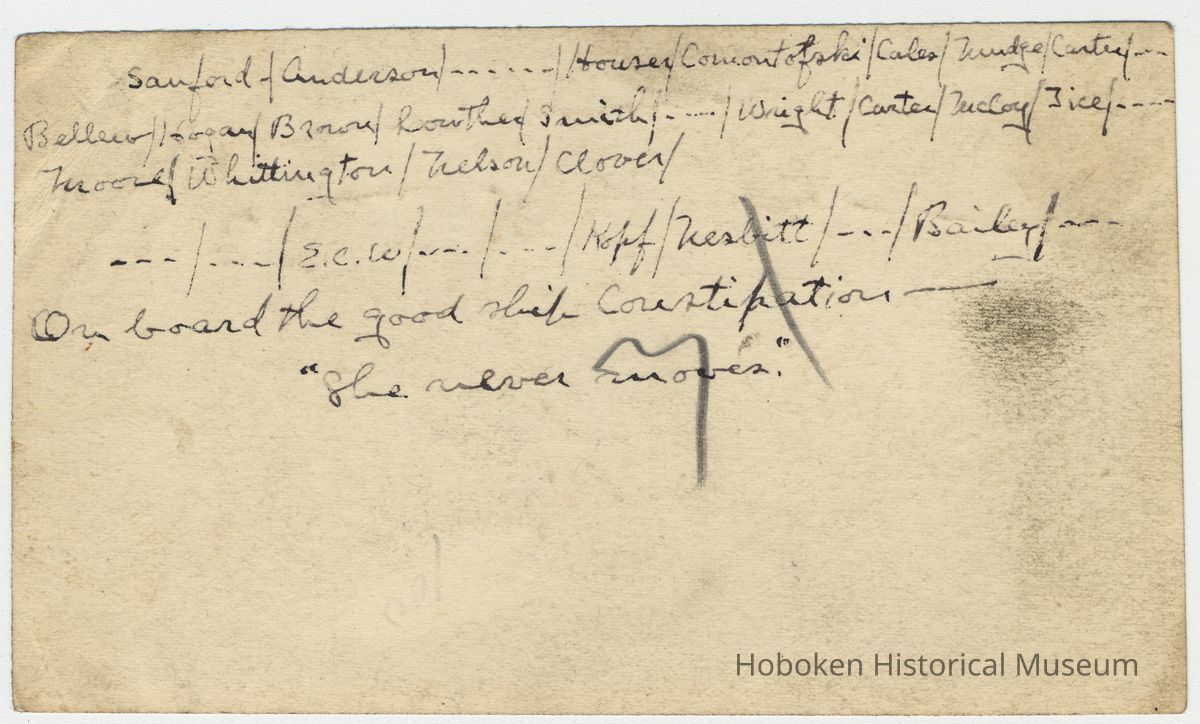 Sanford / Anderson / ------ / Houser / Comontofski / Cales / Mudge / Carter / ---
Bellew / Hogan / Brown / Rowther / Smith / ---- / Wright / Carter / McCoy / Tice / ----
Moore / Whittington / Nelson / Clover /
--- / --- / E.C.W / --- / --- / Kopf / Nesbitt / --- / Bailey / ---
On board the good ship Constipation —
"She never moves."
Hoboken Historical Museum